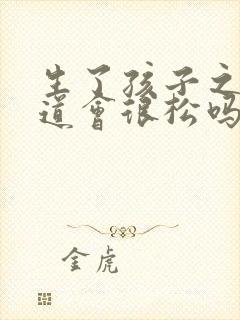 生了孩子之
道会很松吗
金虎